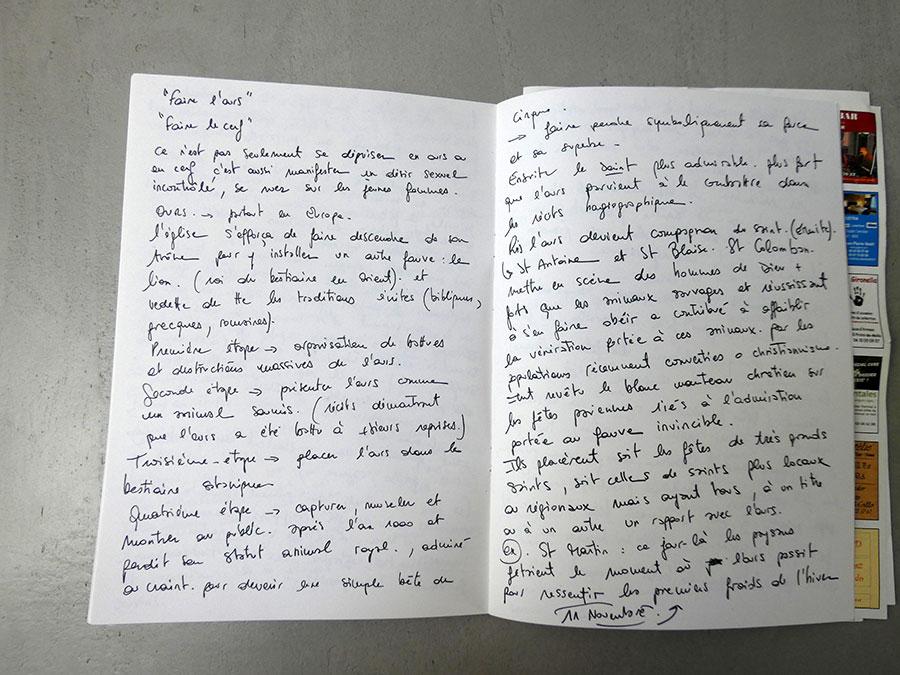 "Faire l'ours"
"Faire le cerf"
Ce n'est pas seulement se déguiser en ours ou
en cerf c'est aussi manifester un désir sexuel
incontrôlé, se ruer sur les jeunes femmes.
Ours. → partout en Europe.
l'église s'efforça de faire descendre de son
trône pour y installer un autre fauve : le
lion. (roi du bestiaire en orient). et
vedette de tte les traditions écrites (bibliques,
grecques, romaines).
Première étape → organisation de battues
et destructions massives de l'ours.
Seconde étape → présenter l'ours comme
un animal soumis. (récits démontrant
que l'ours a été battu à +sieurs reprises.)
Troisième étape → placer l'ours dans le
bestiaire satanique
Quatrième étape → capturer, museler et
montrer au public. après l'an 1000 et
perdit son statut animal royal., admiré
ou craint. pour devenir une simple bête de
cirque.
→ faire perdre symboliquement sa force
et sa superbe.
Ensuite le Saint plus admirable. plus fort
que l'ours parvient à le combattre dans
les récits hagiographique.
Puis l'ours devient compagnon du saint. (Ermite).
↳ St Antoine et St Blaise. St Colomban.
mettre en scène des hommes de Dieu +
forts que les animaux sauvages et réussissant
à s'en faire obéir a contribué à affaiblir
la vénération portée à ces animaux. par les
populations récemment converties o christianisme.
Ont revêtu le blanc manteau chrétien sur
les fêtes païennes liés à l'admiration
portée au fauve invincible.
Ils placèrent soit les fêtes de très grands
saints, soit celles de saints plus locaux
ou régionaux mais ayant tous, à un titre
ou à un autre un rapport avec l'ours.
Ex. St Martin : ce jour-là les paysans
fêtaient le moment où l'ours passait
pour ressentir les premiers froids de l'hiver
11 Novembre.
BAR